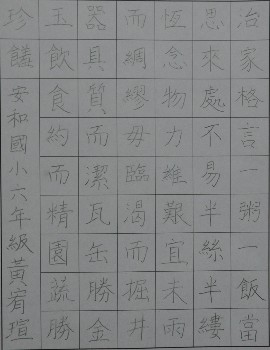 治家格言一粥一飯當
思來處不易半絲半縷
恆念物力維艱宜未雨
而綢繆毋臨渴而掘井
器具質而潔瓦缶勝金
玉飲食約而精園蔬勝
珍饈安和國小六年級黃宥瑄